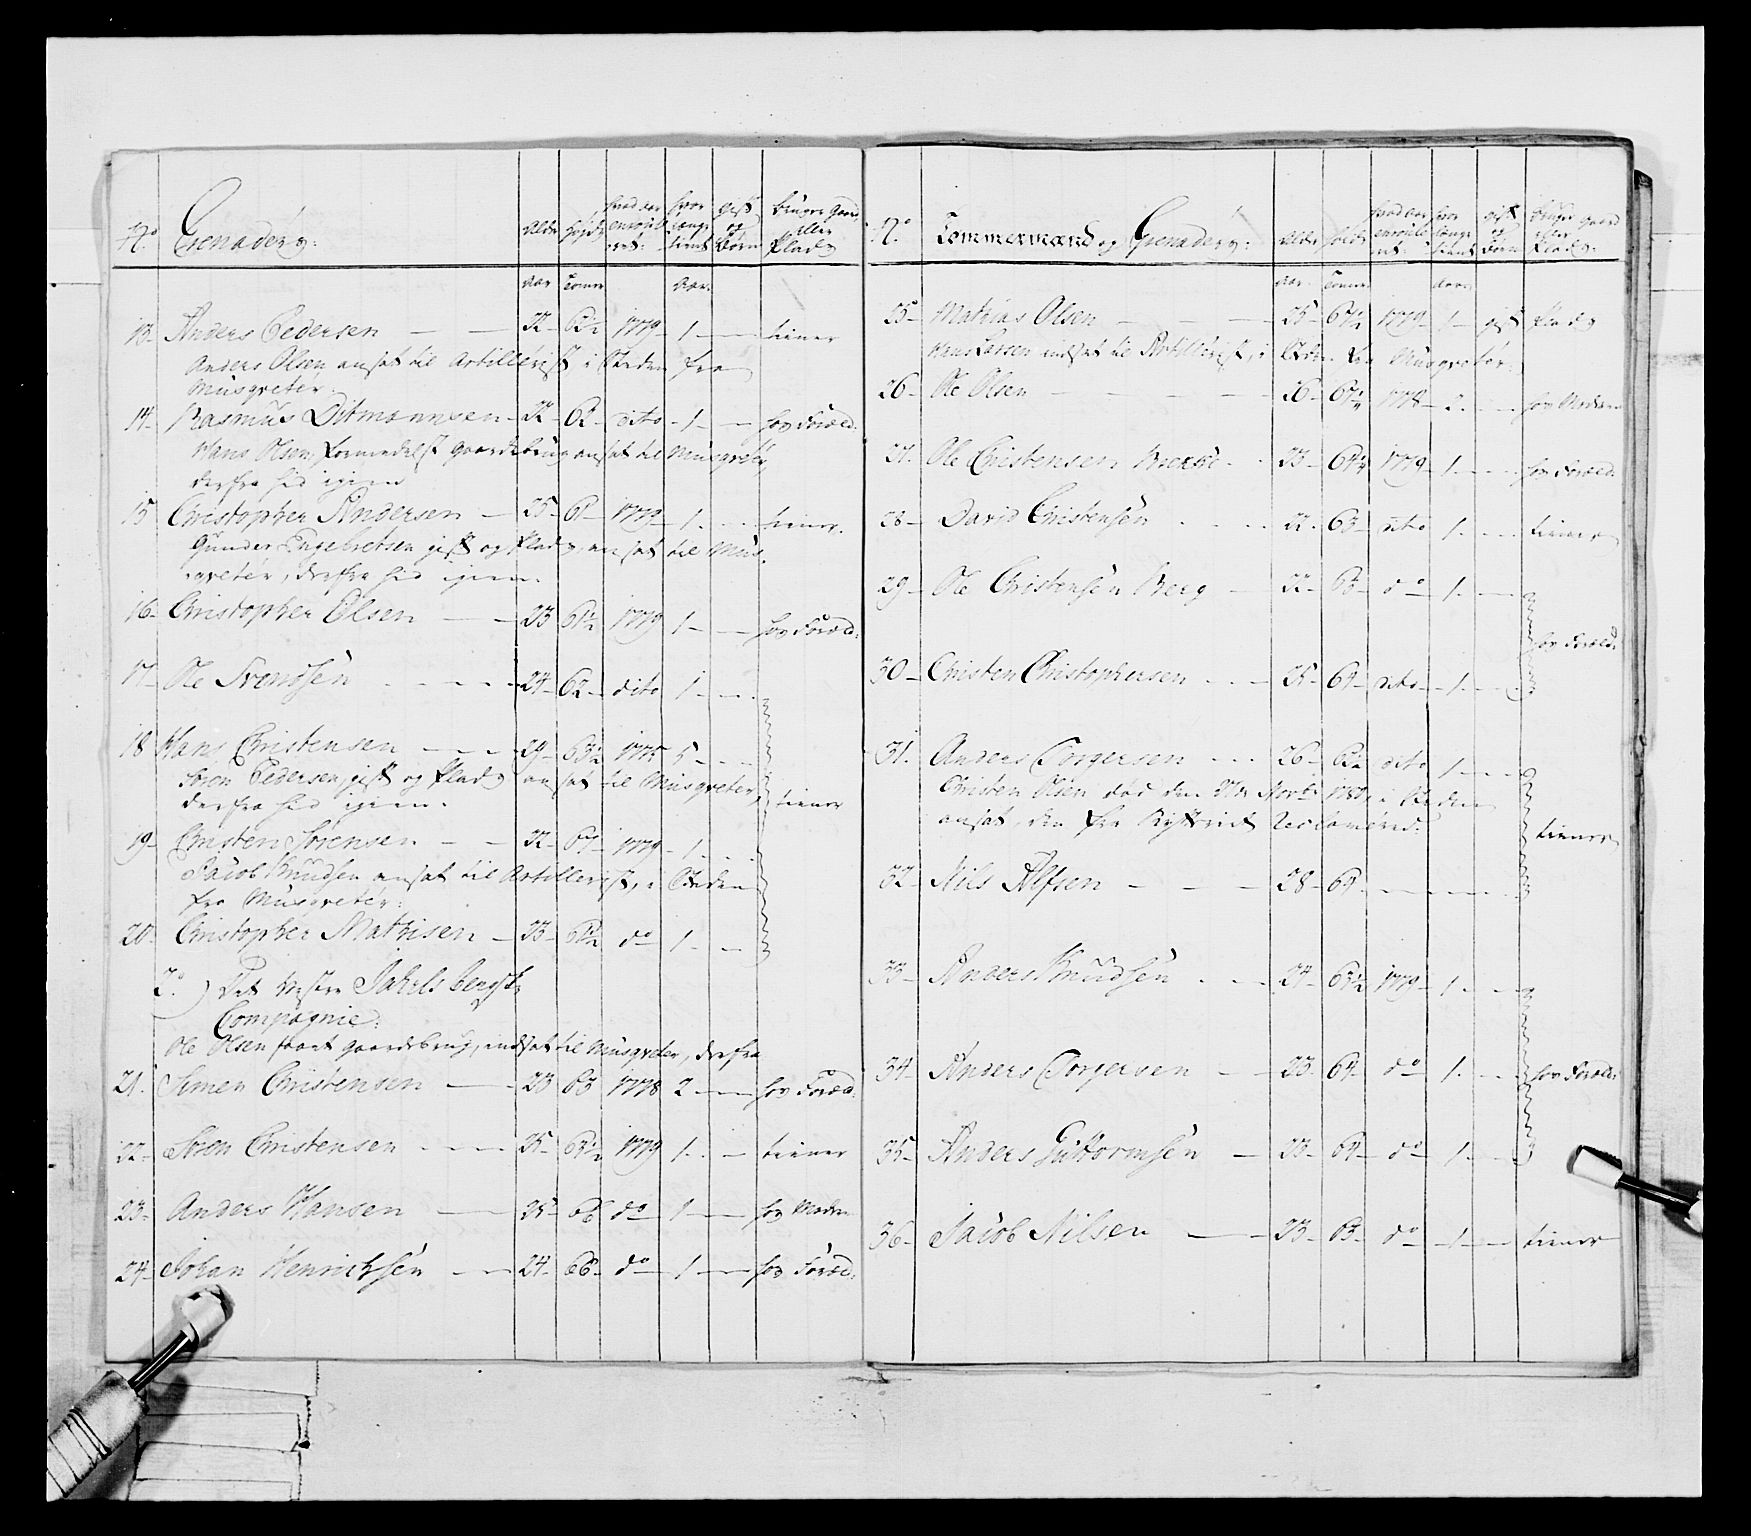 No. Grenaderer: Alder højde hvad aar enroulleret: hvor længe tient gift og børn bruger Gaard eller Plads
Aar Tommer Aar
13 Anders Pedersen 22 62½ 1779 1 tiener
Anders Olsen ansat til Artillerist i Steden fra
Musqveter.
14 Rasmus Ditmannsen 22 62 dito 1 hos Foræld:
Hans Olsen formedelst gaardsbrug ansat til Musqveter
derfra hid igien
15 Christopher Andersen 25 61 1779 1 tiener
Gunder Engebretsen gift og Plads, ansat til Mus
qveter, derfra hid igien.
16 Christopher Olsen 23 61½ 1779 1 hos Foræld:
17 Ole Svendsen 24 62 dito 1
18 Hans Christensen 29 63½ 1775 5
Søren Pedersen, gift og Plads ansat til Musqveter,
derfra hid igien. tiener
19 Christen Sørensen 22 64 1779 1
Jacob Knudsen ansat til Artillerist, i Steden
fra Musqveter:
20 Christopher Mathisen 23 61½ do 1
2o.) Det Vestre Jarlsbergske
Compagnie:
Ole Olsen faaet gaardsbrug, indsat til Musqveter, derfra
21. Simen Christensen 23 63 1778 2 hos Foræld:
22 Søren Christensen 25 63½ 1779 1 tiener
23 Anders Hansen 25 66 do 1 hos Moder
24 Johan Henrichsen 24 66 do 1 hos Foræld:
No. Tømmermænd og Grenaderer: Alder højde hvad aar enroulleret: hvor længe tient gift og Børn bruger Gaard eller Plads:
Aar Tommer Aar
25 Mathias Olsen 25 67½ 1779 1 gift Plads
Hans Larsen indsat til Artillerist, i Steden fra Musqveter:
26 Ole Olsen 26 67¼ 1778 2 hos Moderen
27 Ole Christensen 23 64¼ 1779 1 hos Foræld:
28 David Christensen 22 63 dito 1 tiener
29 Ole Christensen Berg 22 63 do 1
hos Foræld:
30 Christen Christophersen 25 64 dito 1
31. Anders Torgersen 26 62 dito 1
Christen Olsen død den Novbr: 1780, i Steden
ansat, den fra Rytteriet Reclamered: tiener
32 Nils Alfsen 28 64
33 Anders Knudsen 24 63½ 1779 1
34 Anders Torgersen 23 64 do 1 hos Foræld:
35 Anders Guttormsen 23 64 do 1
36 Jacob Nilsen 23 63 do 1 tiener